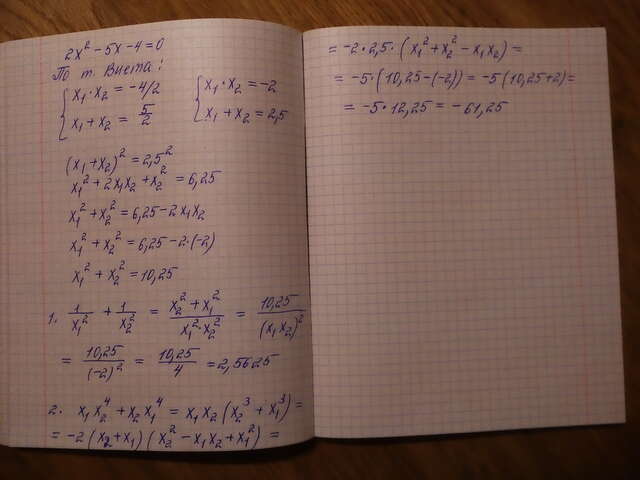 2x² - 5x - 4 = 0
По т. Виета:
{ x₁ · x₂ = -4/2 { x₁ · x₂ = -2
x₁ + x₂ = 5/2 x₁ + x₂ = 2,5
(x₁ + x₂)² = 2,5²
x₁² + 2x₁x₂ + x₂² = 6,25
x₁² + x₂² = 6,25 - 2x₁x₂
x₁² + x₂² = 6,25 - 2·(-2)
x₁² + x₂² = 10,25
1. 1/x₁² + 1/x₂² = (x₂² + x₁²)/(x₁²·x₂²) = 10,25/(x₁x₂)²
= 10,25/(-2)² = 10,25/4 = 2,5625
2. x₁x₂⁴ + x₂x₁⁴ = x₁x₂(x₂³ + x₁³) =
= -2(x₂ + x₁)(x₂² - x₁x₂ + x₁²) =
= -2 · 2,5 · (x₁² + x₂² - x₁x₂) =
= -5·(10,25 - (-2)) = -5(10,25 + 2) =
= -5 · 12,25 = -61,25